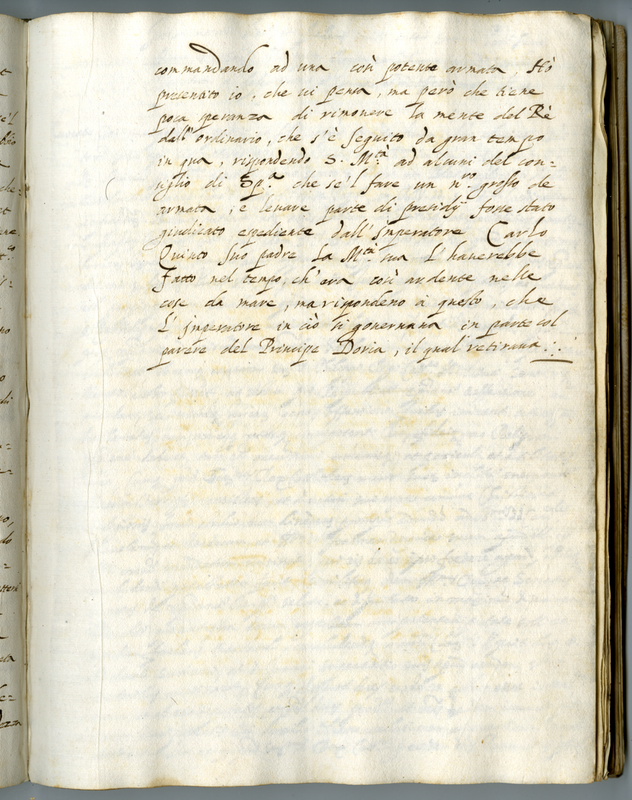 commandando ad una così potente armata. Hò
presentito io, che vi pensa, ma però che tiene
poca speranza di rimovere la mente del Rè
dall'ordinario, che s'è seguito da gran tempo
in qua, rispondendo S. M.tà ad alcuni del con=
siglio di Sp.a che se'l fare un n.ro grosso de
armata, e levare parte di presidij fosse stato
giudicato espediente dall'Imperatore Carlo
Quinto suo padre La M.tà sua l'haverebbe
fatto nel tempo, ch'era così ardente nelle
cose da mare, ma rispondeno à questo, che
l'Imperatore in ciò si governava in parte col
parere del Principe Doria, il qual retirava